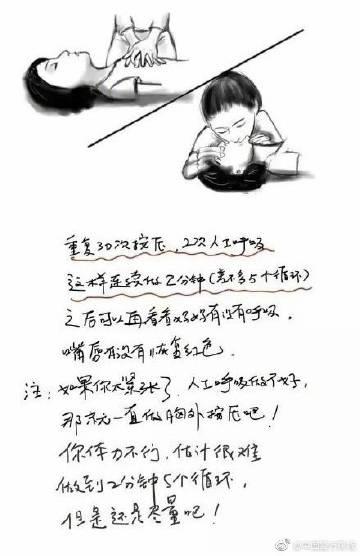 重复30次按压，2次人工呼吸
这样连续做2分钟(差不多5个循环)
之后可以再看看妈妈有没有呼吸，
嘴唇有没有恢复红色．
注：如果你太紧张了，人工呼吸做不好，
那就一直做胸外按压吧！
你体力不够，估计很难
做到2分钟5个循环，
但是还是尽量吧！